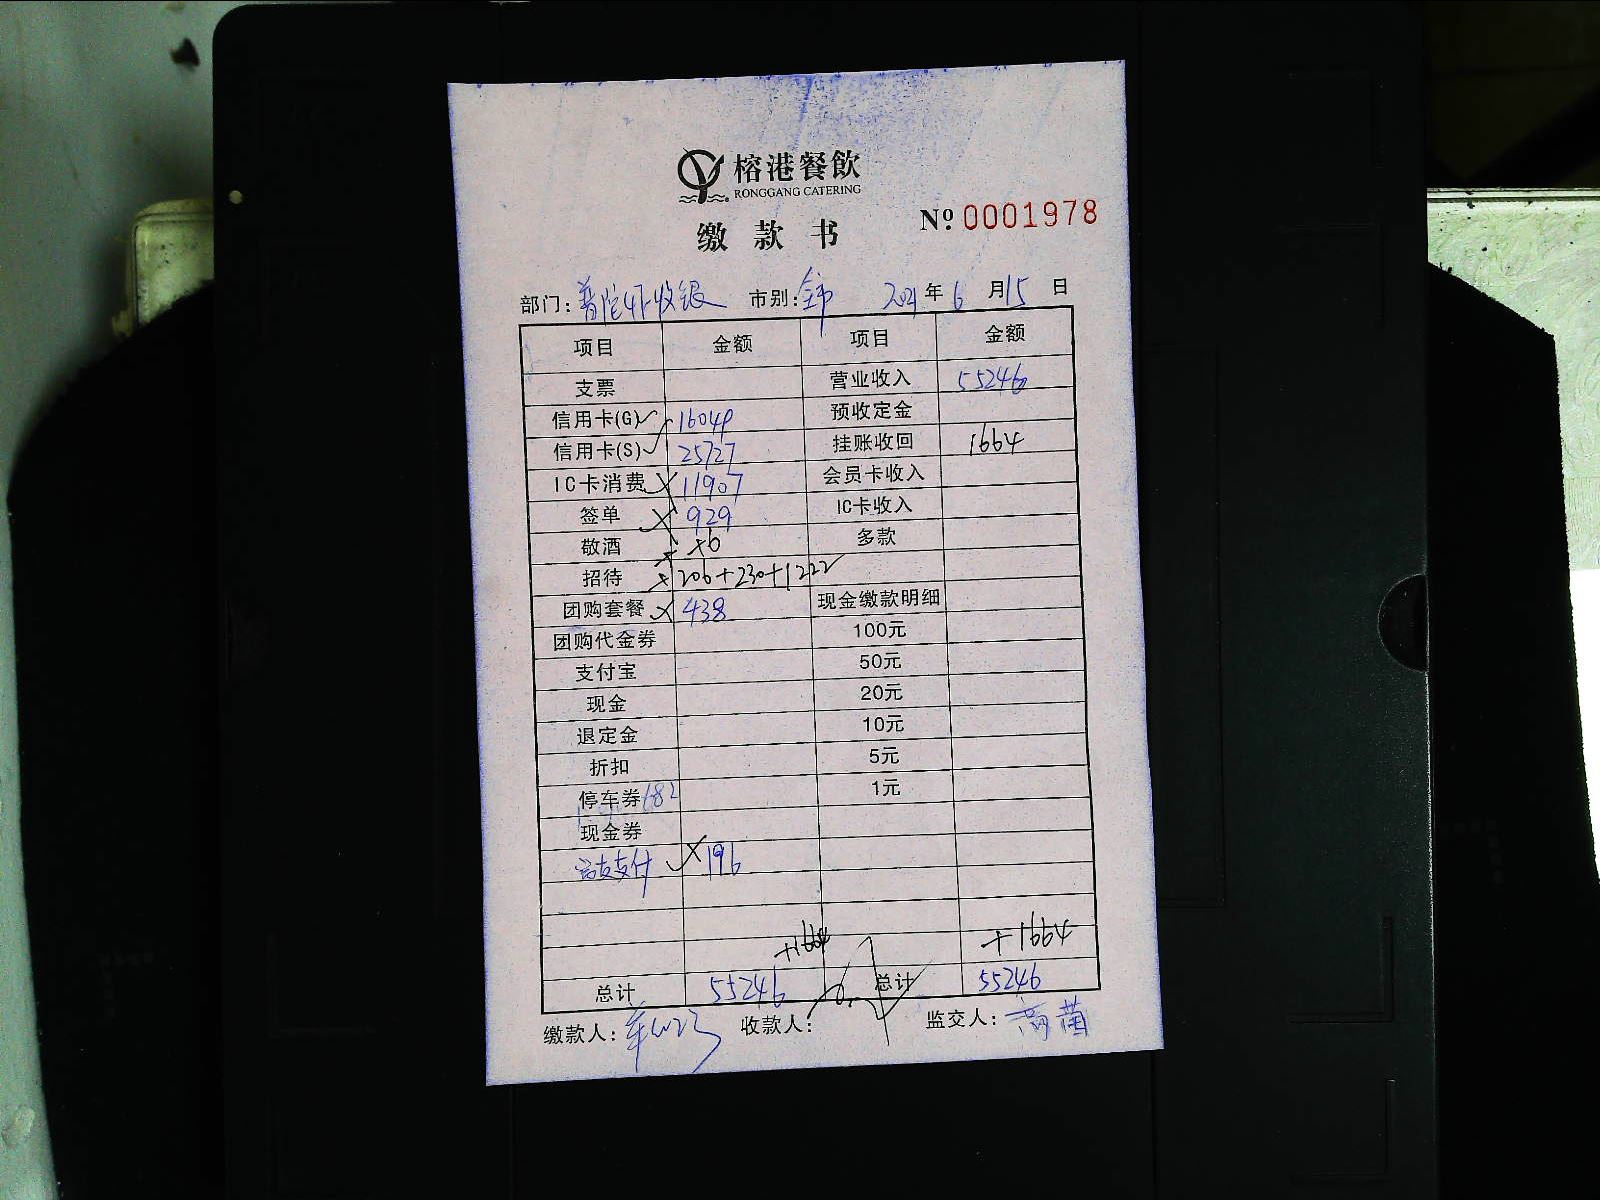 榕港餐飲
RONGGANG CATERING
缴款书 № 0001978
部门: 普陀 收银 市别: 全市 2021年6月15日
项目 金额 项目 金额
支票 营业收入 55246
信用卡(G) 16049 预收定金
信用卡(S) 25727 挂账收回 1664
IC卡消费 11907 会员卡收入
签单 929 IC卡收入
敬酒 +6 多款
招待 206+230+1222
团购套餐 438 现金缴款明细
团购代金券 100元
支付宝 50元
现金 20元
退定金 10元
折扣 5元
停车券 682 1元
现金券
支付 196
+1664 +1664
总计 55246 总计 55246
缴款人: 收款人: 监交人: